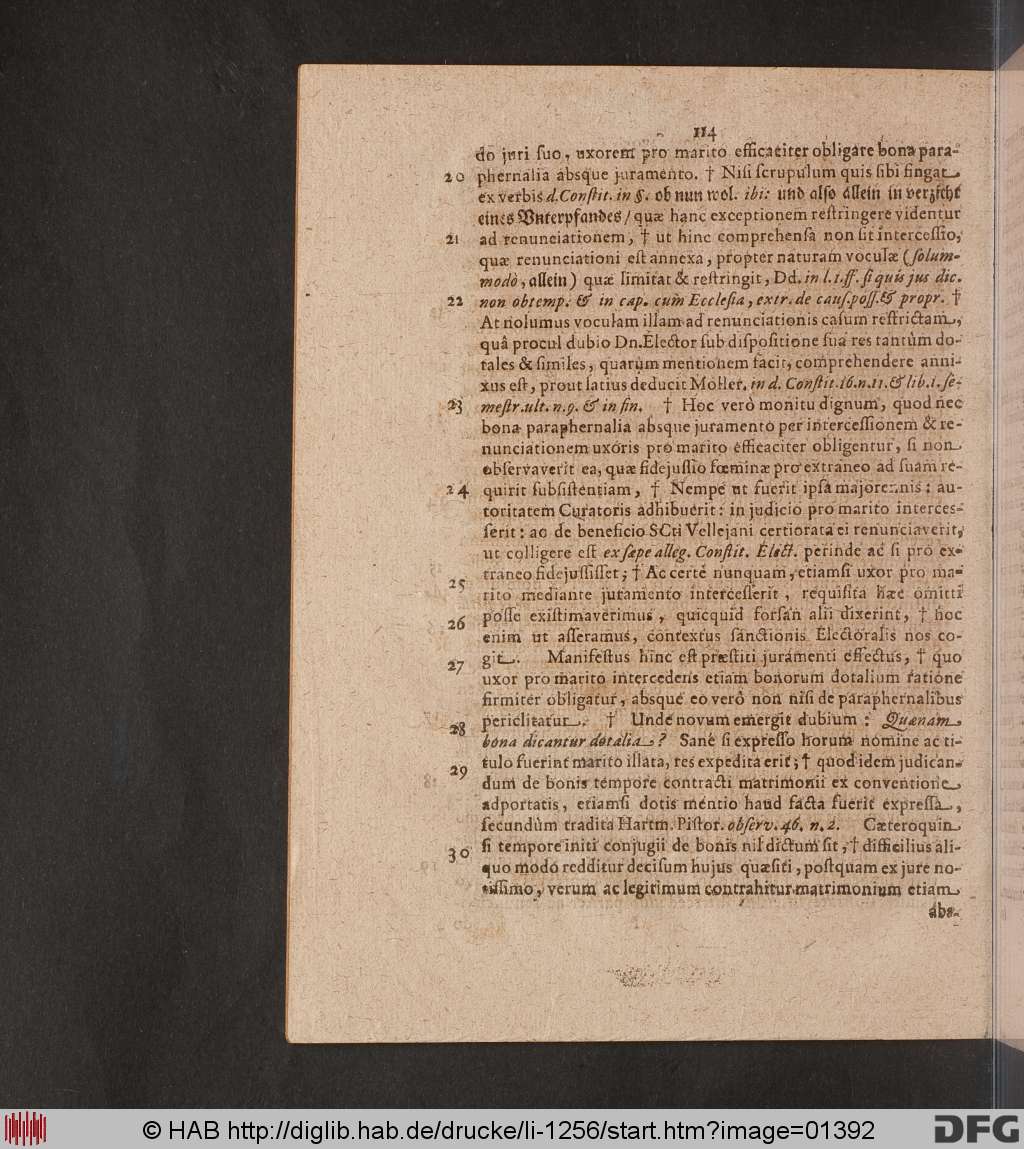 114
do juri suo, uxorem pro marito efficaciter obligare bona para-
20 phernalia absque juramento. † Nisi scrupulum quis sibi fingat
ex verbis d. Constit. in §. ob nun wol. ibi: und also allein in verzicht
eines Vnterpfandes / quæ hanc exceptionem restringere videntur
21 ad renunciationem, † ut hinc comprehensa non sit intercessio,
quæ renunciationi est annexa, propter naturam voculæ (solum-
modò, allein) quæ limitat & restringit, Dd. in l. 1. ff. si quis jus dic.
22 non obtemp. & in cap. cum Ecclesia, extr. de caus. poss. & propr. †
At nolumus voculam illam ad renunciationis casum restrictam,
quâ procul dubio Dn. Elector sub dispositione sua res tantùm do-
tales & similes, quarum mentionem facit, comprehendere anni-
xus est, prout latius deducit Moller. in d. Constit. 16. n. 11. & lib. 1. se-
23 mestr. ult. n. 9. & in fin. † Hoc verò monitu dignum, quod nec
bona paraphernalia absque juramento per intercessionem & re-
nunciationem uxoris pro marito efficaciter obligentur, si non
observaverit ea, quæ fidejussio fœminæ pro extraneo ad suam re-
24 quirit subsistentiam, † Nempe ut fuerit ipsa majorennis: au-
toritatem Curatoris adhibuerit: in judicio pro marito interces-
serit: ac de beneficio SCti Vellejani certiorata ei renunciaverit,
ut colligere est ex sæpe alleg. Constit. Elect. perinde ac si pro ex-
25 traneo fidejussisset; † Ac certè nunquam, etiamsi uxor pro ma-
rito mediante juramento intercesserit, requisita hæc omitti
posse existimaverimus, quicquid forsan alii dixerint, † hoc
26 enim ut asseramus, contextus sanctionis Electoralis nos co-
27 git. Manifestus hinc est præstiti juramenti effectus, † quo
uxor pro marito intercedens etiam bonorum dotalium ratione
firmiter obligatur, absque eo verò non nisi de paraphernalibus
28 periclitatur. † Unde novum emergit dubium: Quænam
bona dicantur dotalia? Sanè si expresso horum nomine ac ti-
29 tulo fuerint marito illata, res expedita erit; † quod idem judican-
dum de bonis tempore contracti matrimonii ex conventione
adportatis, etiamsi dotis mentio haud facta fuerit expressa,
secundùm tradita Hartm. Pistor. observ. 46. n. 2. Cæteroquin
30 si tempore initi conjugii de bonis nil dictum sit, † difficilius ali-
quo modo redditur decisum hujus quæsiti, postquam ex jure no-
tissimo, verum ac legitimum contrahitur matrimonium etiam
abs-
© HAB http://diglib.hab.de/drucke/li-1256/start.htm?image=01392
DFG